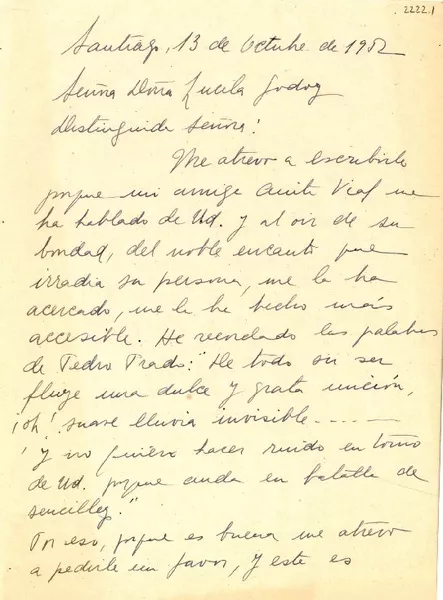 2222.1
Santiago, 13 de Octubre de 1952
Señora Doña Lucila Godoy
Distinguida Señora:
Me atrevo a escribirle
porque mi amiga Anita Vial me
ha hablado de Ud. y al oir de su
bondad, del noble encanto que
irradia su persona, me la ha
acercado, me la ha hecho más
accesible. He recordado las palabras
de Pedro Prado: "De todo su ser
fluye una dulce y grata unción,
¡oh! suave lluvia invisible - - - -
"y no quiero hacer ruido en torno
de Ud. porque anda en batalla de
sencillez."
Por eso, porque es buena me atrevo
a pedirle un favor, y este es